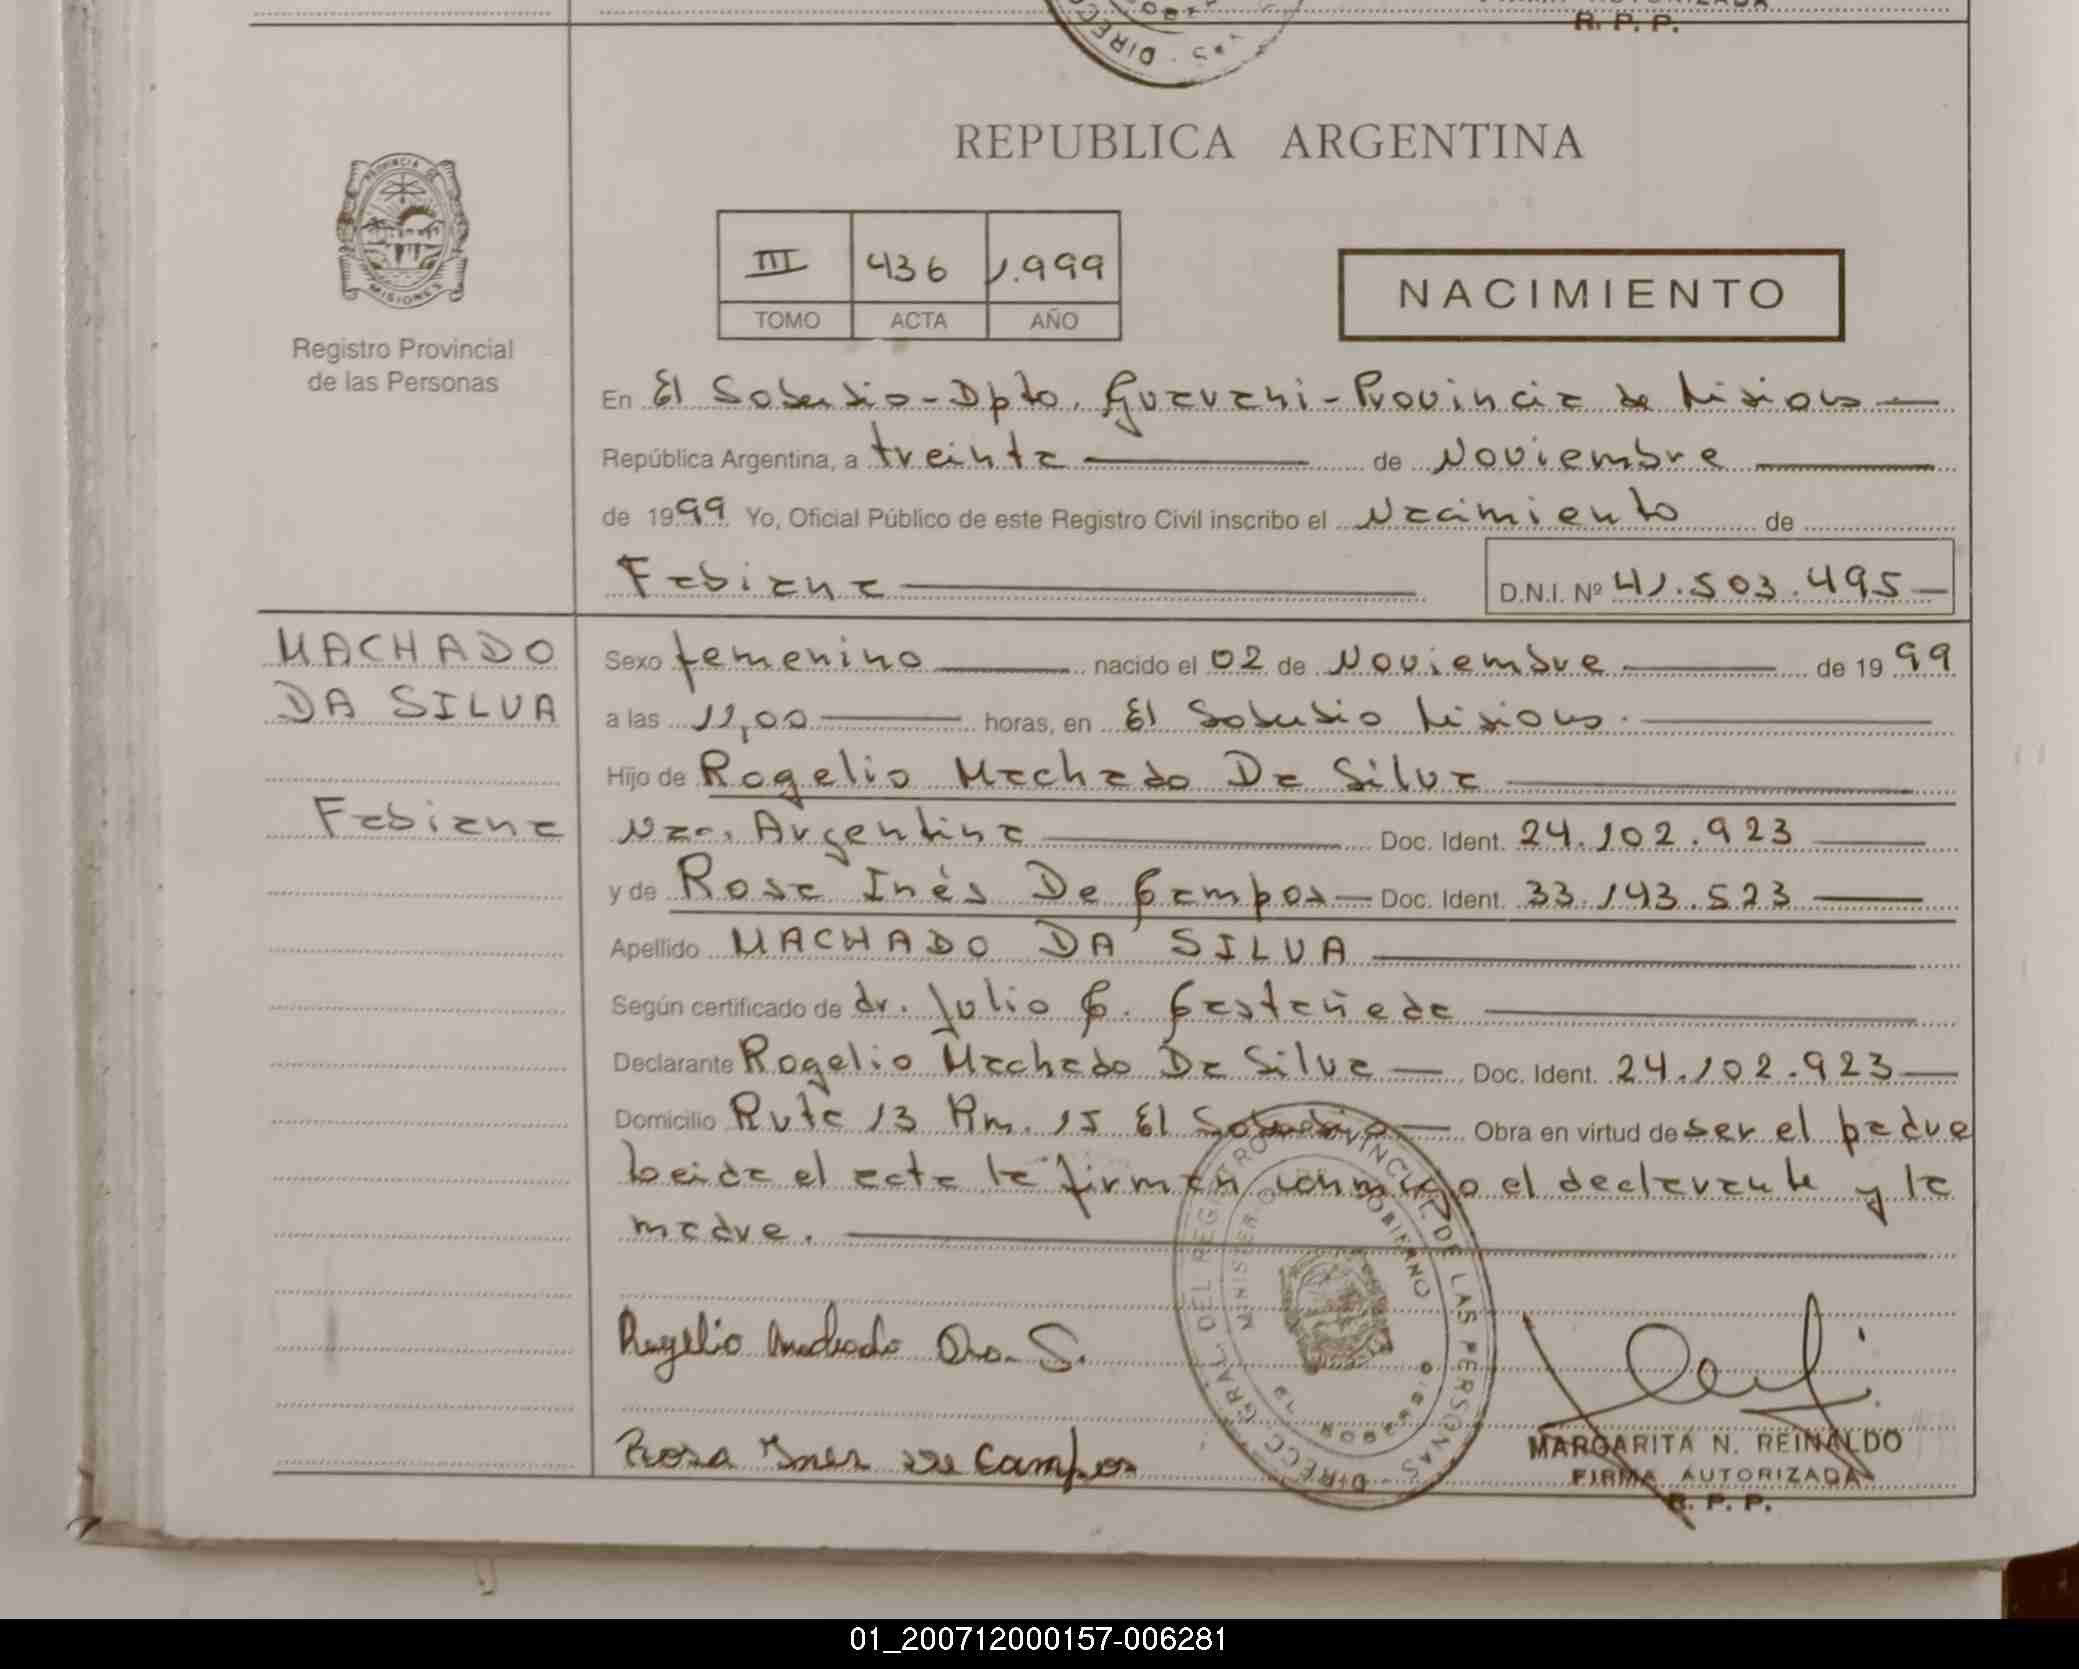 R. P. P.
PROVINCIA DE
MISIONES
Registro Provincial
de las Personas
REPUBLICA ARGENTINA
III 436 1.999
TOMO ACTA AÑO
NACIMIENTO
En El Soberbio - Dpto. Guarani - Provincia de Misiones
República Argentina, a treinta de Noviembre
de 1999 Yo, Oficial Público de este Registro Civil inscribo el Nacimiento de
Fabiana D.N.I. Nº 41.503.495
MACHADO
DA SILVA
Fabiana
Sexo femenino nacido el 02 de Noviembre de 1999
a las 11,00 horas, en El Soberbio Misiones.
Hijo de Rogelio Machado Da Silva
Nac. Argentina Doc. Ident. 24.102.923
y de Rosa Inés De Campos Doc. Ident. 33.143.523
Apellido MACHADO DA SILVA
Según certificado de dr. Julio C. Castañeda
Declarante Rogelio Machado Da Silva Doc. Ident. 24.102.923
Domicilio Ruta 13 Km. 15 El Soberbio Obra en virtud de ser el padre
Leida el acta la firman conmigo el declarante y la
madre.
Rogelio Machado Da S.
Rosa Ines De Campos
DIRECC. GRAL. DEL REGISTRO PROVINCIAL DE LAS PERSONAS
MINISTERIO DE GOBIERNO
MARGARITA N. REINALDO
FIRMA AUTORIZADA
R. P. P.
01_200712000157-006281